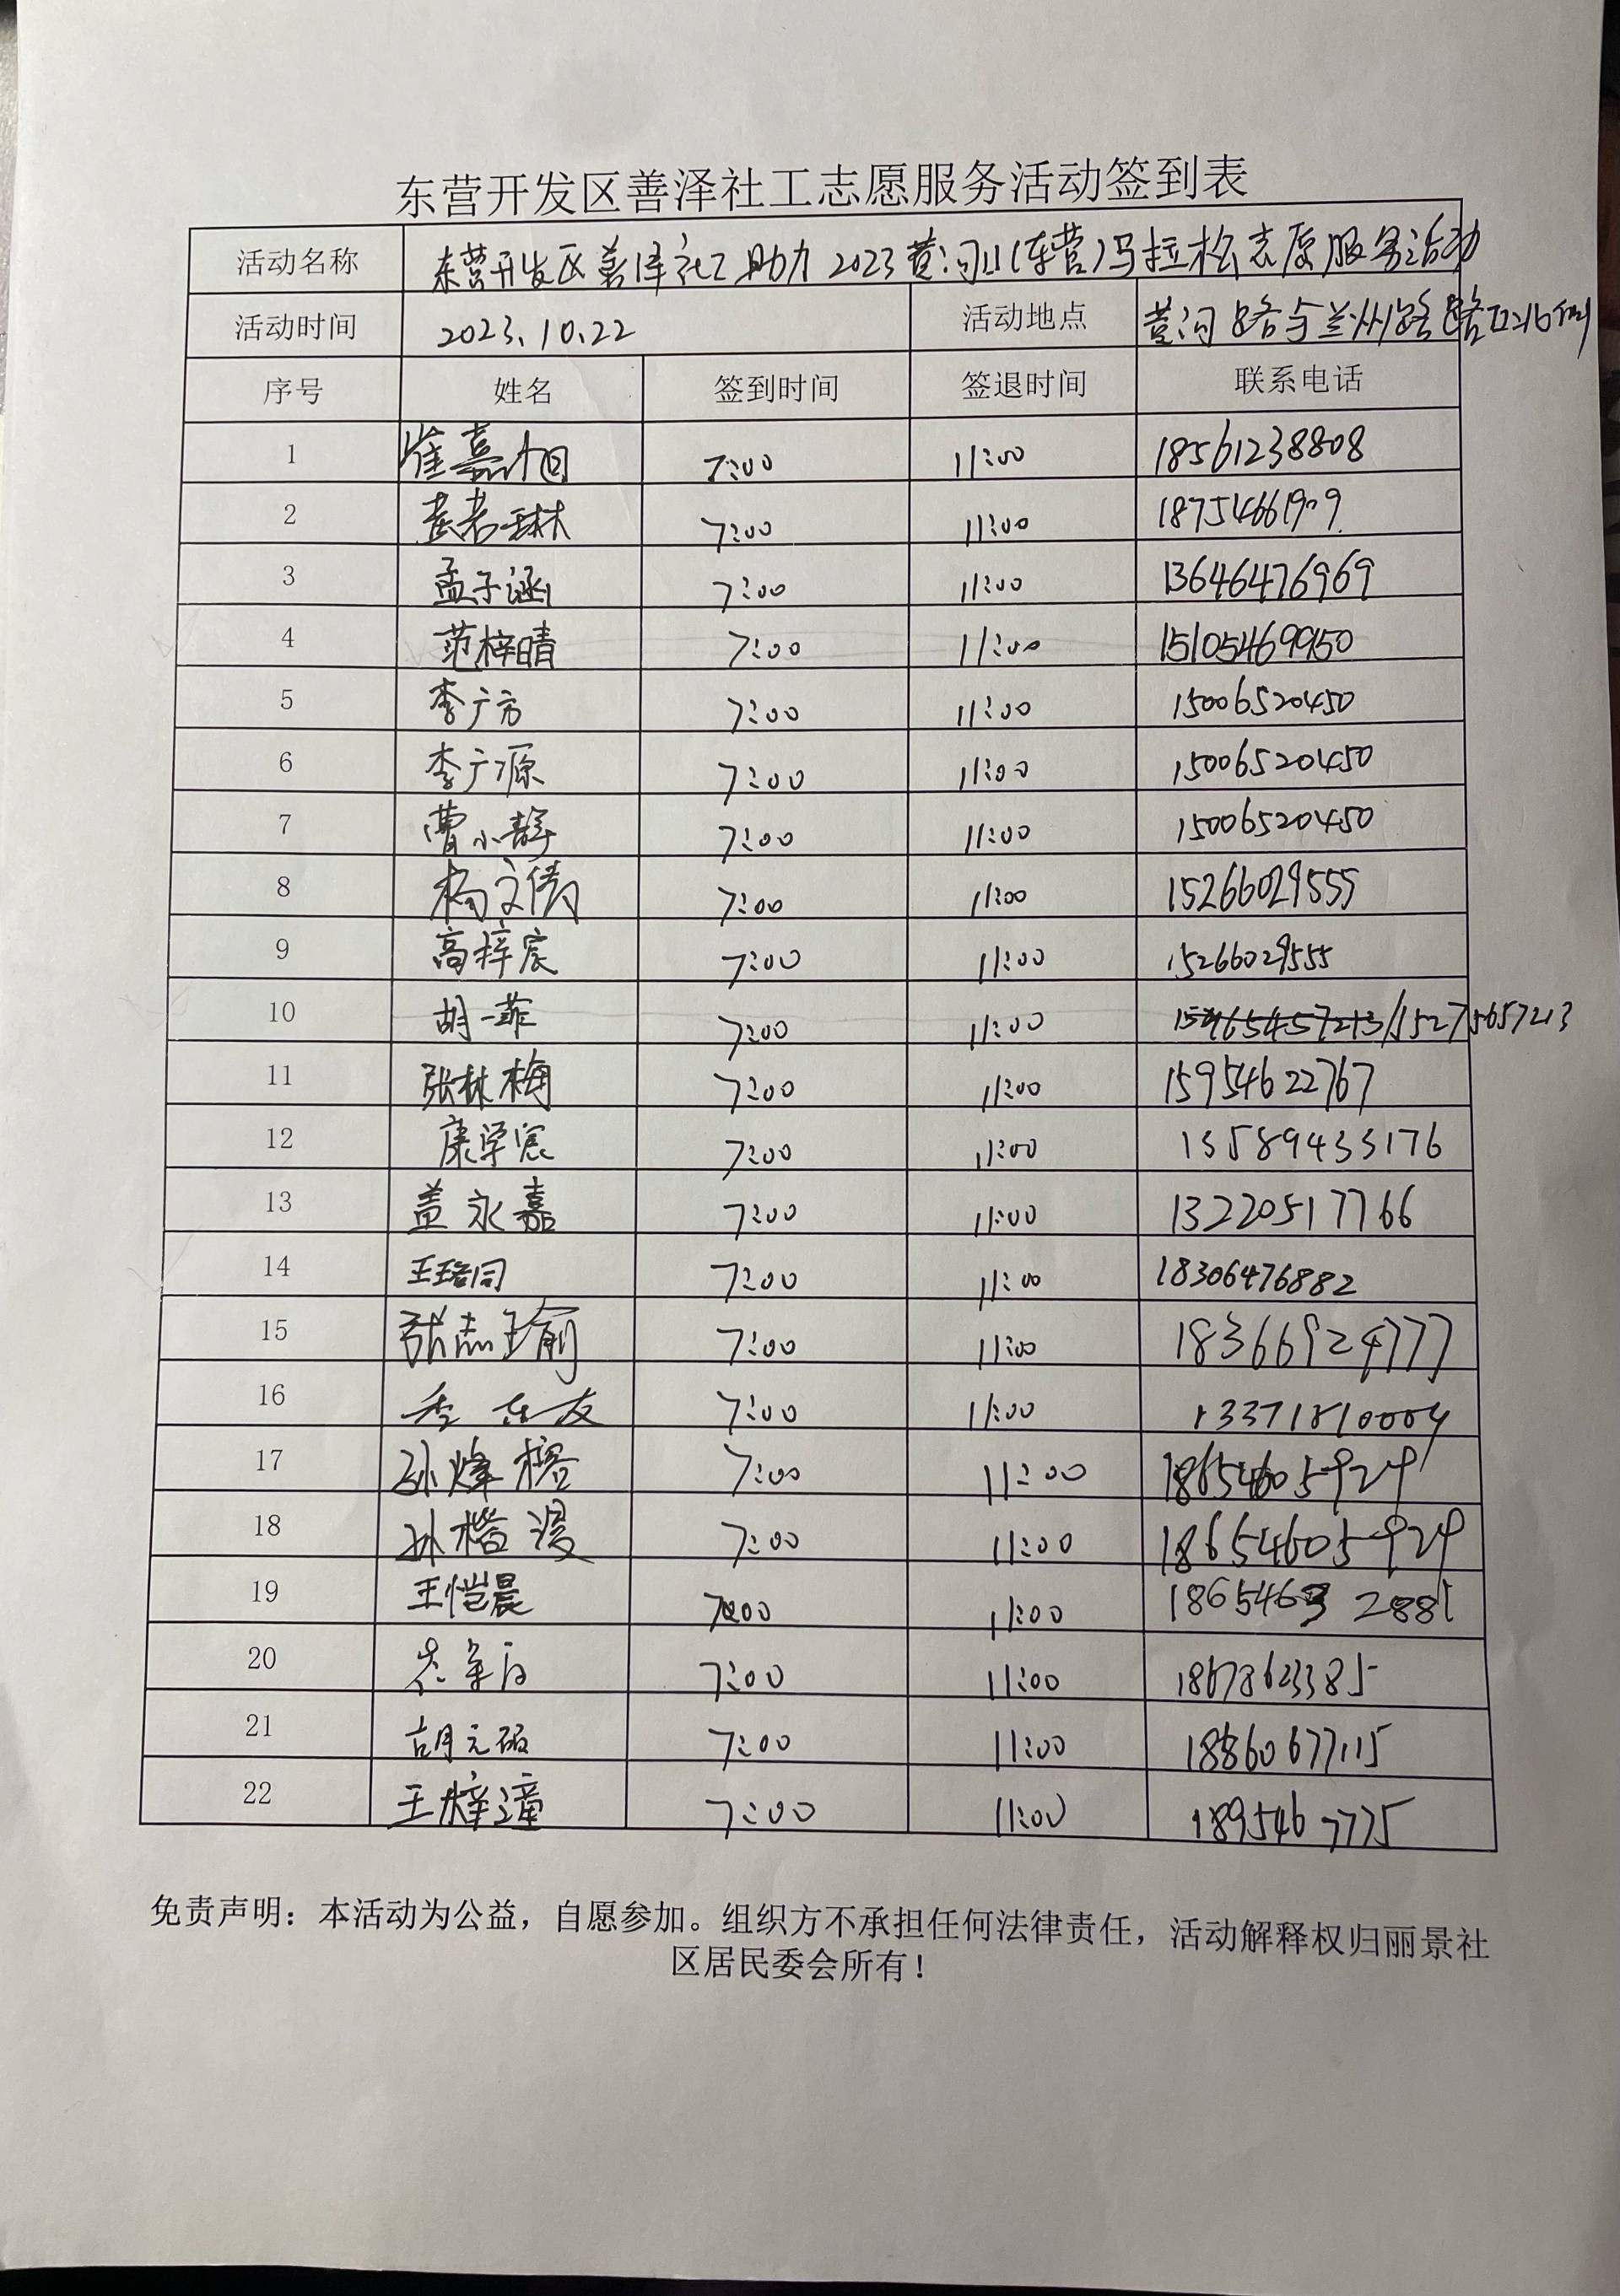 东营开发区善泽社工志愿服务活动签到表
活动名称 东营开发区善泽社工助力2023黄河口(东营)马拉松志愿服务活动
活动时间 2023.10.22 活动地点 黄河路与兰州路路口北侧
序号 姓名 签到时间 签退时间 联系电话
1 崔嘉 7:00 11:00 18561238808
2 7:00 11:00 18754661909
3 孟子涵 7:00 11:00 13646476969
4 范梓晴 7:00 11:00 15105469950
5 李广方 7:00 11:00 15006520450
6 李广源 7:00 11:00 15006520450
7 曹小静 7:00 11:00 15006520450
8 杨文倩 7:00 11:00 15266029555
9 高梓宸 7:00 11:00 15266029555
10 胡一菲 7:00 11:00 15275657213
11 张林梅 7:00 11:00 15954622767
12 康学宸 7:00 11:00 13589433176
13 盖永嘉 7:00 11:00 13220517766
14 王珞同 7:00 11:00 18306476882
15 张志瑜 7:00 11:00 18366924777
16 7:00 11:00 13371810004
17 孙烽榕 7:00 11:00 18654605929
18 孙楷浸 7:00 11:00 18654605929
19 王恺晨 7:00 11:00 18654632881
20 7:00 11:00 18678623385
21 胡元硕 7:00 11:00 18860677115
22 王梓潼 7:00 11:00 1895467775
免责声明：本活动为公益，自愿参加。组织方不承担任何法律责任，活动解释权归丽景社
区居民委会所有！